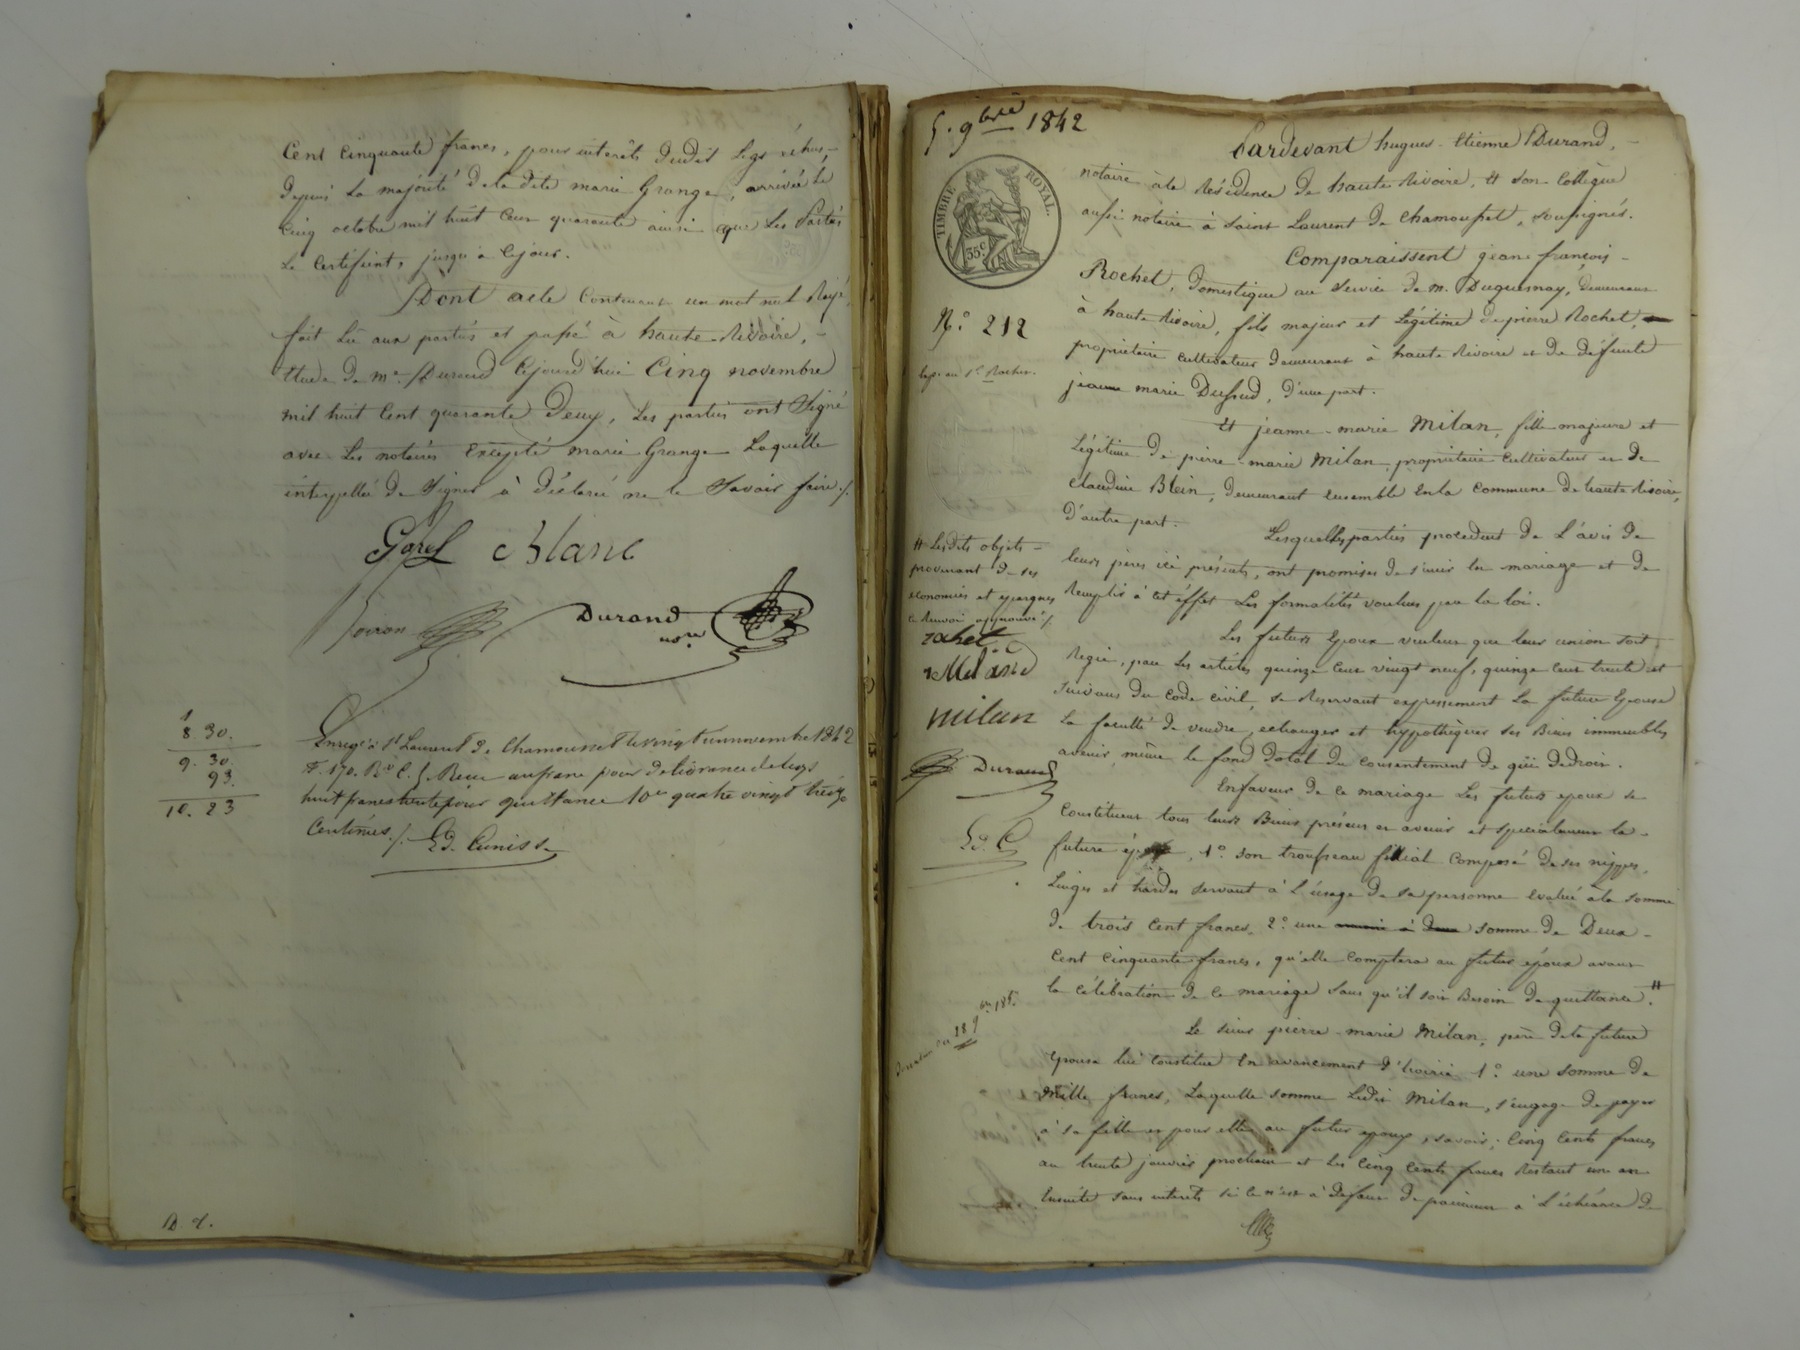 Cent Cinquante francs, pour intérêts dudit legs échus,
depuis la majorité de la dite marie Grange, arrivée le
Cinq octobre mil huit Cent quarante ainsi que les Parties
le Certifient, jusqu'à Cejour.
Dont acte Contenant un mot nul Rayé,
fait Lu aux parties et passé à haute-Rivoire,
Etude de me. Durand Cejourd'hui Cinq novembre
mil huit Cent quarante Deux, Les parties ont Signé
avec Les notaires Excepté marie Grange Laquelle
interpellée de Signer à déclaré ne le Savoir faire ./.
Garel Blanc
Durand
nore
8 30.
9. 30
93.
10. 23
Enregé à St Laurent de Chamousset le vingt un novembre 1842
f. 170. Ro C. 5. Reçu un franc pour delivrance de legs
huit francs trente pour quittance 10e quatre vingt treize
Centimes ./.
D. d.
5. 9bre 1842
TIMBRE ROYAL.
35c
No. 212
Exp. au Sr. Rochet.
Pardevant hugues-Etienne Durand,
notaire à la Résidence de haute Rivoire, Et son Collègue
aussi notaire à Saint Laurent de Chamousset, soussignés.
Comparaissent jean françois
Rochet, domestique au Service de m. Duquesnay, demeurant
à haute Rivoire, fils majeur et Légitime de pierre Rochet,
propriétaire Cultivateur demeurant à haute Rivoire et de défunte
jeanne marie Dussud, d'une part.
Et jeanne-marie Milan, fille majeure et
Légitime de pierre-marie Milan, propriétaire Cultivateur et de
Claudine Blein, demeurant ensemble En la Commune de haute Rivoire,
d'autre part.
Lesquelles parties procédant de L'avis de
leurs pères ici présents, ont promises de s'unir En mariage et de
Remplir à cet effet Les formalités voulues par la loi.
Les futurs Epoux veulent que leur union soit
Régie, par Les articles quinze Cent vingt neuf, quinze Cent trente et
Suivans du Code Civil, se Réservant expressement La future Epouse
La faculté de vendre, echanger et hypothèquer ses Biens immeubles
avenir, même le fond Dotal du Consentement de qui dedroit.
Enfaveur de Ce mariage Les futurs epoux se
Constituent tous leurs Biens présens et avenir et Specialement la
future épouse, 1o. son trousseau filial Composé de ses nippes,
Linges et hardes servant à L'usage de sa personne Evalué à la Somme
de trois Cent francs, 2o. une somme de Deux
Cent Cinquante francs, qu'elle Comptera au futur époux avant
la Célébration de Ce mariage Sans qu'il soit Besoin de quittance. #
Le sieur pierre-marie Milan, père dela future
Epouse lui Constitue En avancement d'hoirie 1o. une Somme de
Mille francs, Laquelle somme Ledit Milan, s'engage de payer
à sa fille et pour elle au futur epoux, savoir: Cinq Cents francs
au trente janvier prochain et Les Cinq Cents francs Restant un an
Ensuite sans interêts si Ce n'est à Défaut de paiement à L'échéance de
# Lesdits objets
provenant de ses
économies et epargnes
Ce Renvoi approuvé ./.
rochet
milan
Durand